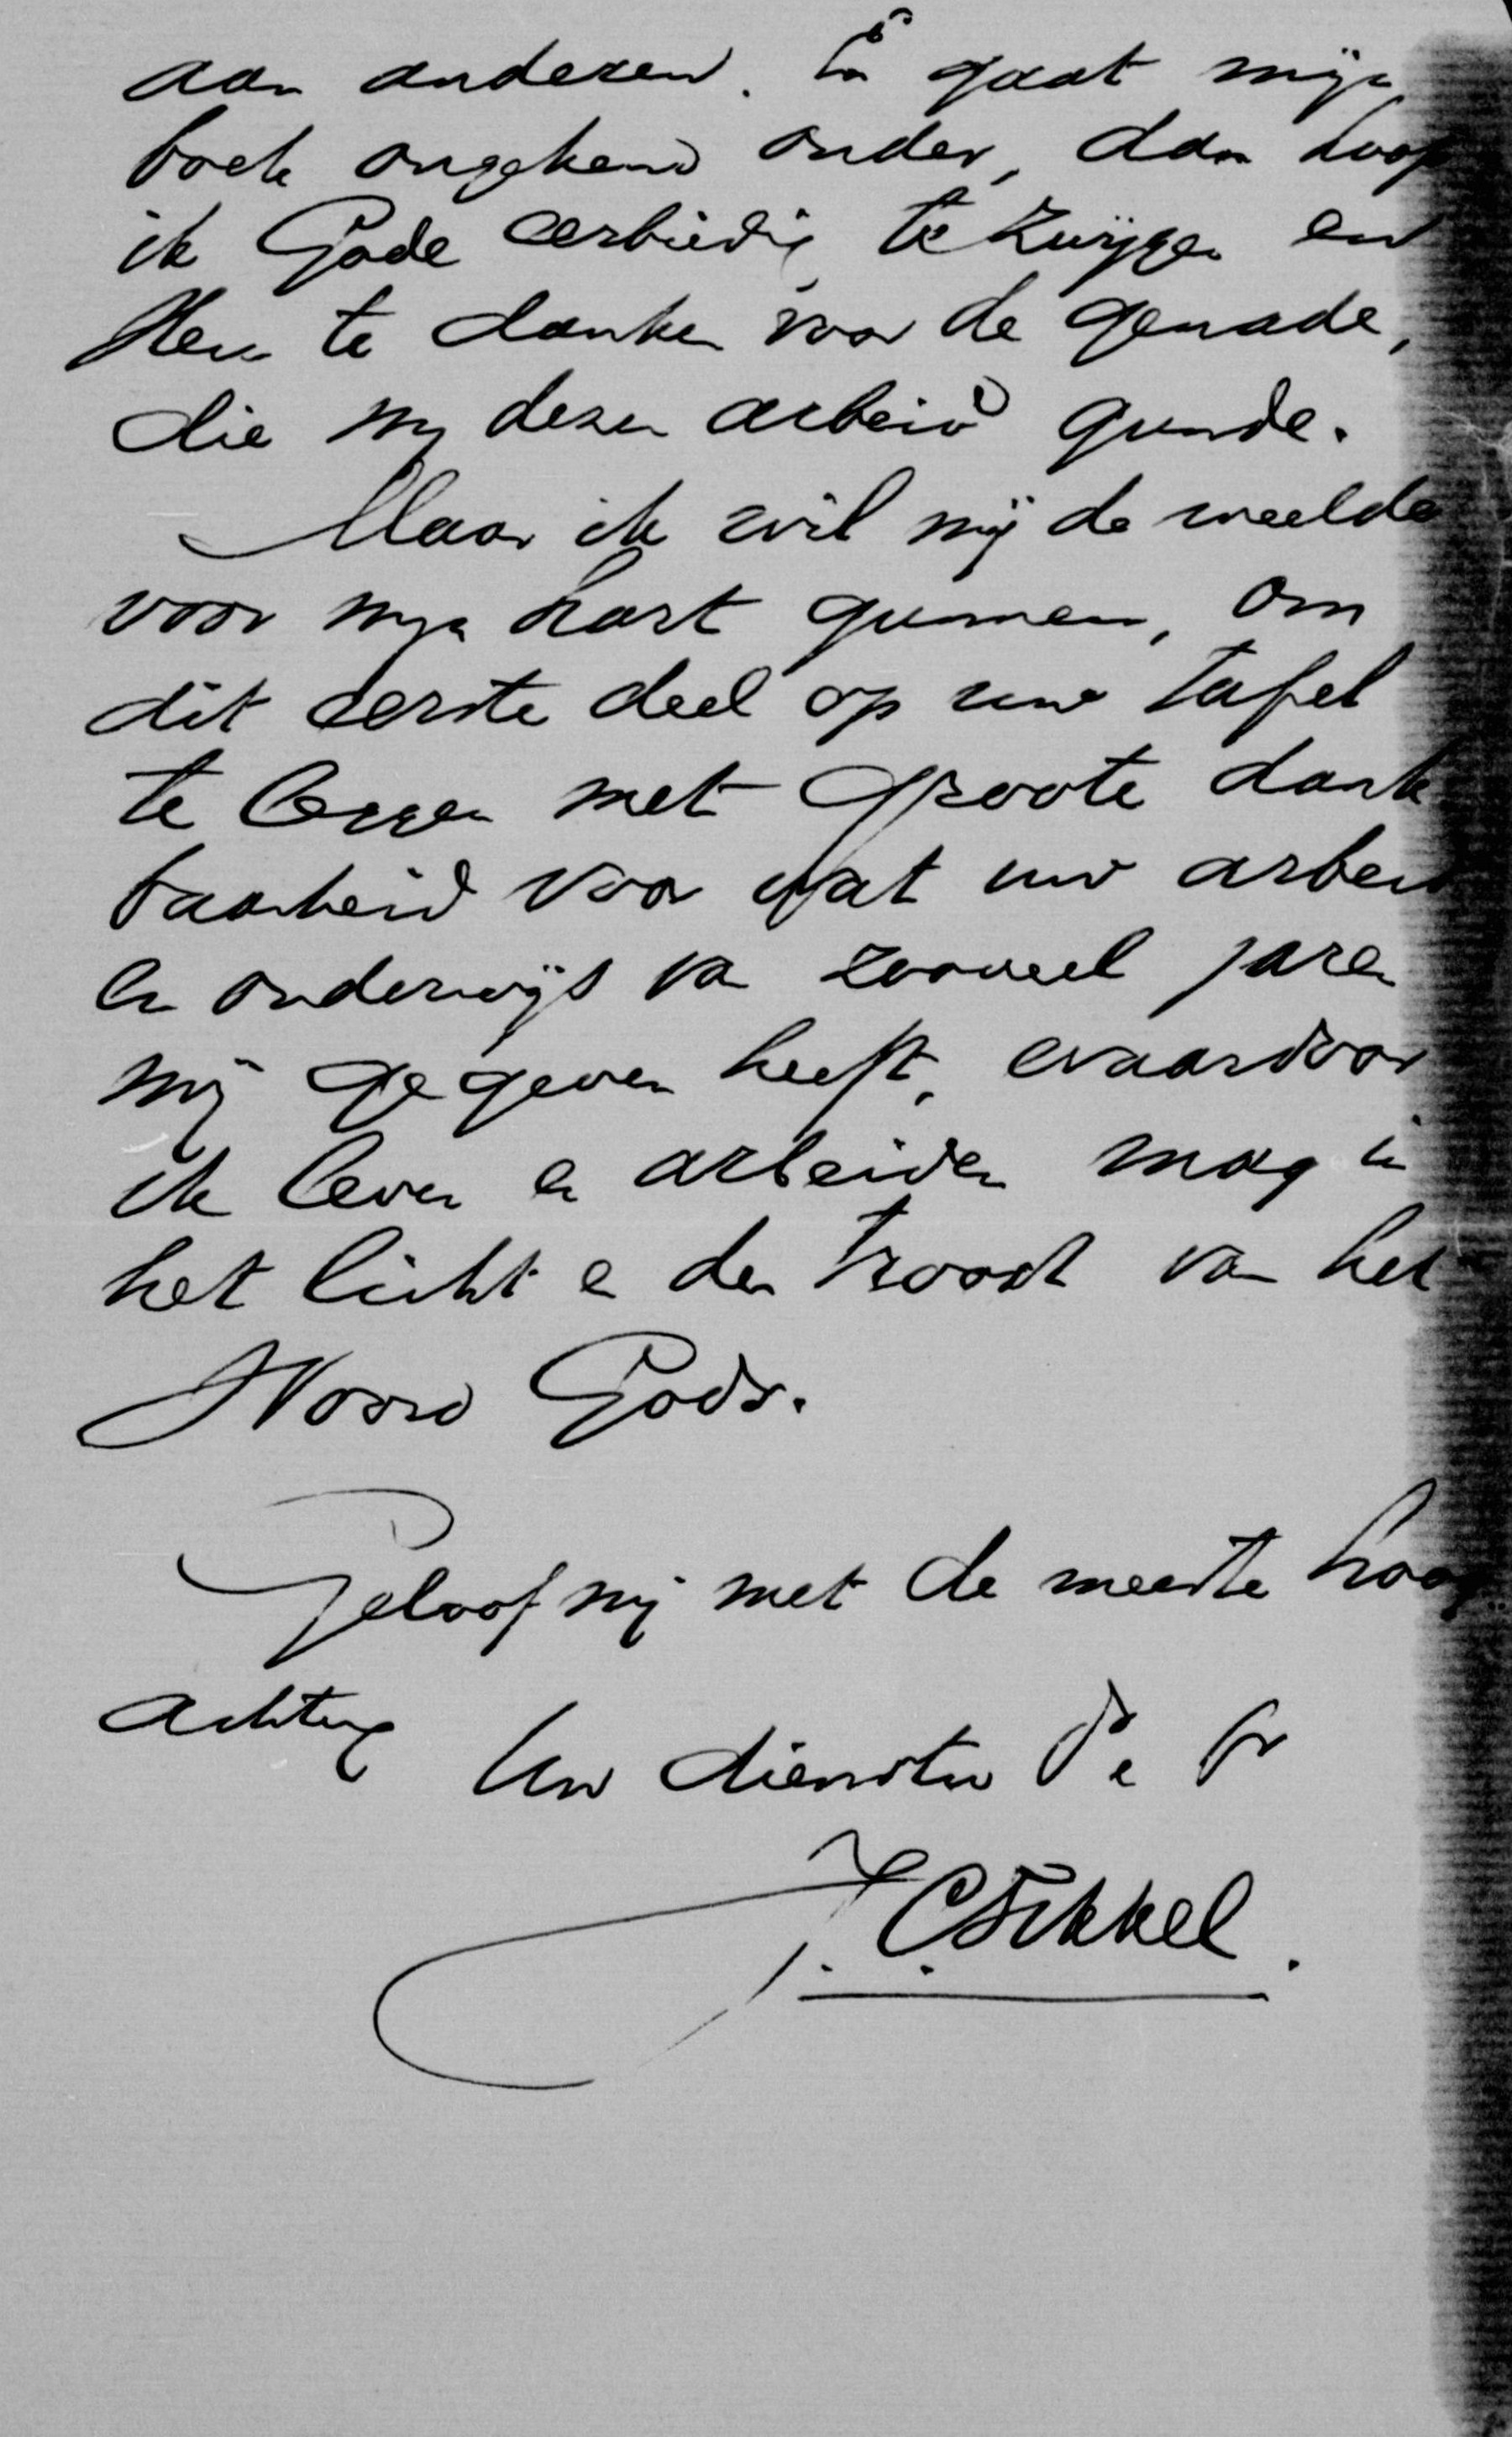 aan anderen. En gaat mijn
boek ongekend onder, dan hoop
ik Gode eerbiedig te zwijgen en
Hem te danken voor de genade,
die mij dezen arbeid gunde.
Maar ik wil mij de weelde
voor mijn hart gunnen, om
dit eerste deel op uw tafel
te leggen met groote dank
baarheid voor wat uw arbeid
en onderwijs van zooveel jaren
mij gegeven heeft, waardoor
ik leven en arbeiden mag in
het licht en den troost van het
Woord Gods.
Geloof mij met de meeste hoog
achting
Uw dienstw Dr en br
J.C. Sikkel.